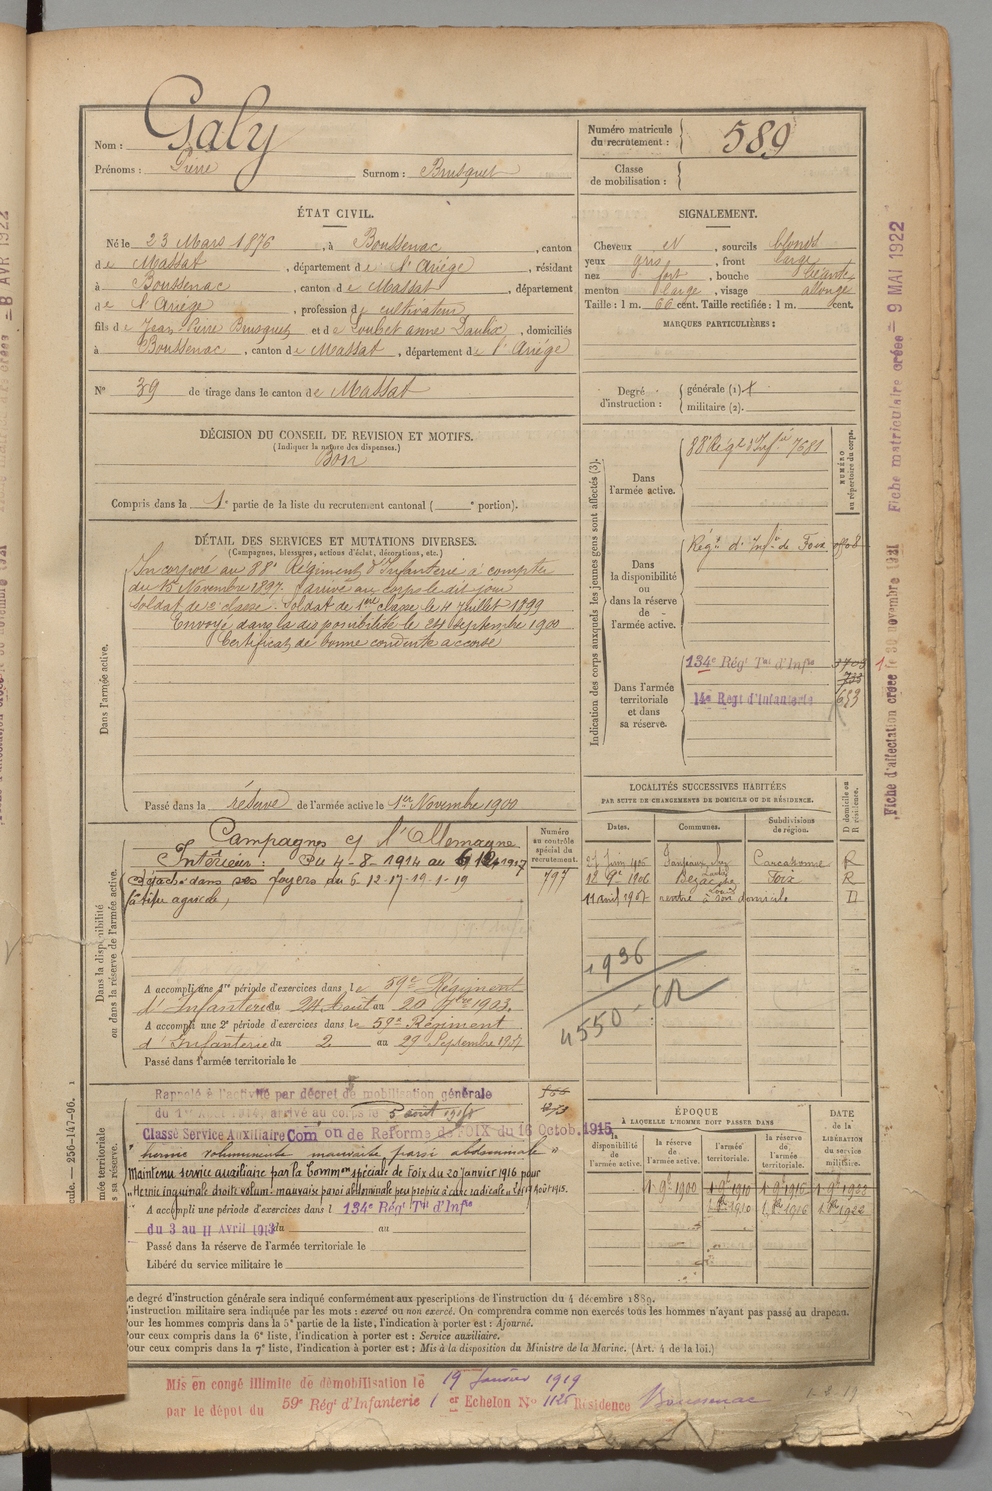 Nom : Galy
Prénoms : Pierre Surnom : Brusquet
Numéro matricule du recrutement : 589
Classe de mobilisation :
ÉTAT CIVIL.
Né le 23 Mars 1876, à Boussenac, canton
de Massat, département de l'Ariège, résidant
à Boussenac, canton de Massat, département
de l'Ariège, profession de cultivateur
fils de Jean Pierre Brusquet et de Loubet anne Daulix, domiciliés
à Boussenac, canton de Massat, département de l'Ariége
N° 39 de tirage dans le canton de Massat
SIGNALEMENT.
Cheveux N, sourcils blonds
yeux gris, front large
nez fort, bouche béante
menton large, visage allongé
Taille : 1 m. 66 cent. Taille rectifiée : 1 m. cent.
MARQUES PARTICULIÈRES :
Degré d'instruction : générale (1)
militaire (2).
DÉCISION DU CONSEIL DE REVISION ET MOTIFS.
(Indiquer la nature des dispenses.)
Bon
Compris dans la 1e partie de la liste du recrutement cantonal ( e portion).
DÉTAIL DES SERVICES ET MUTATIONS DIVERSES.
(Campagnes, blessures, actions d'éclat, décorations, etc.)
Dans l'armée active.
Incorporé au 88e Régiment d'Infanterie à compter
du 15 Novembre 1897. Arrivé au corps le dit jour
Soldat de 2e classe. Soldat de 1ere classe le 4 Juillet 1899
Envoyé dans la disponibilité le 24 Septembre 1900
Certificat de bonne conduite accordé
Passé dans la réserve de l'armée active le 1er Novembre 1900
Indication des corps auxquels les jeunes gens sont affectés (3).
NUMÉRO au répertoire du corps.
Dans l'armée active.
88e Régt d'Infie 7681
Dans la disponibilité ou dans la réserve de l'armée active.
Régt d'Infie de Foix
Dans l'armée territoriale et dans sa réserve.
134e Régt Tial d'Infie
14e Regt d'Infanterie 653
LOCALITÉS SUCCESSIVES HABITÉES
PAR SUITE DE CHANGEMENTS DE DOMICILE OU DE RÉSIDENCE.
D domicile ou R résidence.
Dates. Communes. Subdivisions de région.
Carcassonne R
1906 Foix R
11 avril 1907 rentré à son domicile D
1936
4550
Dans la disponibilité ou dans la réserve de l'armée active.
Numéro au contrôle spécial du recrutement.
797
Campagnes c/ l'Allemagne
Intérieur : Du 4-8-1914 au 1917
Détaché dans ses foyers du 6-12-17-19-1-19
agricole,
A accompli une 1re période d'exercices dans le 59e Régiment
d'Infanterie du 24 Aout au 20 7bre 1903.
A accompli une 2e période d'exercices dans le 59e Régiment
d'Infanterie du 2 au 29 Septembre 1907
Passé dans l'armée territoriale le
Rappelé à l'activité par décret de mobilisation générale
du 1er Aout 1914, arrivé au corps le 5 août 1914
Classé Service Auxiliaire Comon de Reforme de FOIX du 16 Octob. 1915
"hernie volumineuse mauvaise paroi abdominale"
Maintenu service auxiliaire par la Common spéciale de Foix du 20 Janvier 1916 pour
"Hernie inguinale droite volum. mauvaise paroi abdominale peu propice à cure radicale" Août 1915.
A accompli une période d'exercices dans l 134e Régt Tial d'Infie
du 3 au 11 Avril 1913 du au
Passé dans la réserve de l'armée territoriale le
Libéré du service militaire le
ÉPOQUE
À LAQUELLE L'HOMME DOIT PASSER DANS
la disponibilité de l'armée active. la réserve de l'armée active. l'armée territoriale. la réserve de l'armée territoriale.
DATE de la LIBÉRATION du service militaire.
1 9e 1900 1 9e 1910 1 9e 1916 1 9e 1922
1910 1916 1922
Le degré d'instruction générale sera indiqué conformément aux prescriptions de l'instruction du 4 décembre 1889.
L'instruction militaire sera indiquée par les mots : exercé ou non exercé. On comprendra comme non exercés tous les hommes n'ayant pas passé au drapeau.
Pour les hommes compris dans la 5e partie de la liste, l'indication à porter est : Ajourné.
Pour ceux compris dans la 6e liste, l'indication à porter est : Service auxiliaire.
Pour ceux compris dans la 7e liste, l'indication à porter est : Mis à la disposition du Ministre de la Marine. (Art. 4 de la loi.)
Mis en congé illimité de démobilisation le 19 Janvier 1919
par le dépot du 59e Régt d'Infanterie 1er Echelon No 1125 Résidence Boussenac
Fiche matriculaire créée - 9 MAI 1922
Fiche d'affectation créée le 30 novembre 1931
256-147-96.